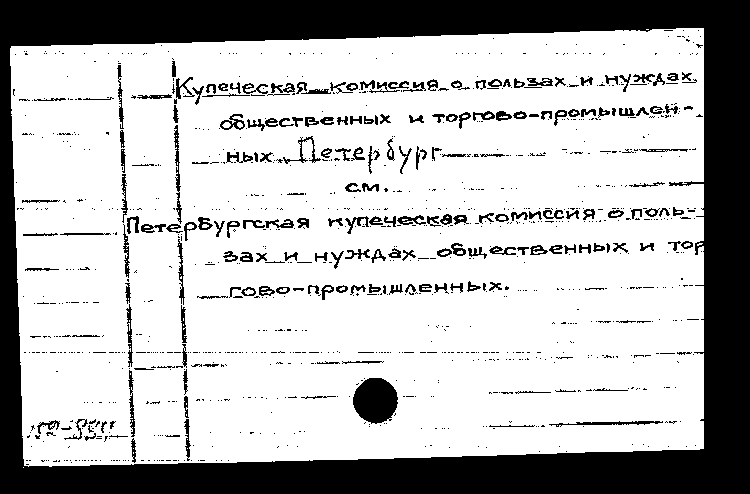 Купеческая комиссия о пользах и нуждах
общественных и торгово-промышлен-
ных. Петербург
см.
Петербургская купеческая комиссия о поль-
зах и нуждах общественных и тор
гово-промышленных.